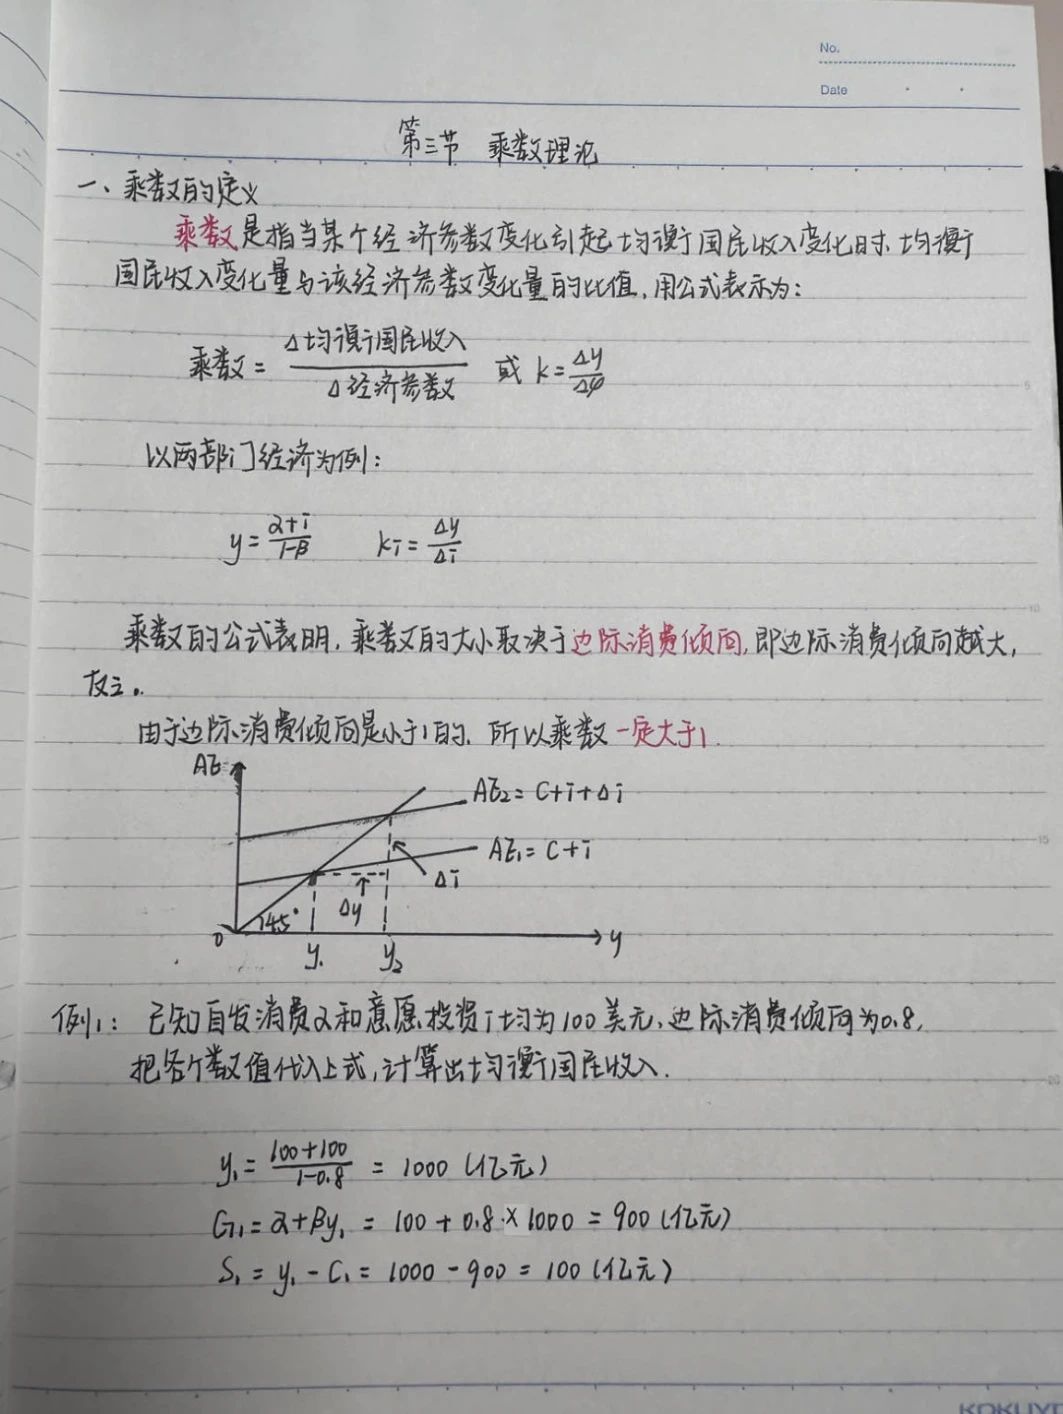 No.
Date
第三节 乘数理论
一、乘数的定义
乘数是指当某个经济参数变化引起均衡国民收入变化时,均衡
国民收入变化量与该经济参数变化量的比值,用公式表示为:
乘数 = Δ均衡国民收入 / Δ经济参数 或 k = Δy / Δφ
以两部门经济为例:
y = α+i / 1-β  ki = Δy / Δi
乘数的公式表明,乘数的大小取决于边际消费倾向,即边际消费倾向越大,
反之。
由于边际消费倾向是小于1的,所以乘数一定大于1.
AE
AE₂ = C+i+Δi
AE₁ = C+i
Δi
Δy
45°
0
y₁
y₂
y
例1: 已知自发消费α和意愿投资i均为100美元,边际消费倾向为0.8,
把各个数值代入上式,计算出均衡国民收入.
y₁ = 100+100 / 1-0.8 = 1000 (亿元)
C₁ = α+βy₁ = 100 + 0.8 × 1000 = 900 (亿元)
S₁ = y₁ - C₁ = 1000 - 900 = 100 (亿元)
5
10
15
20
KOKUYO